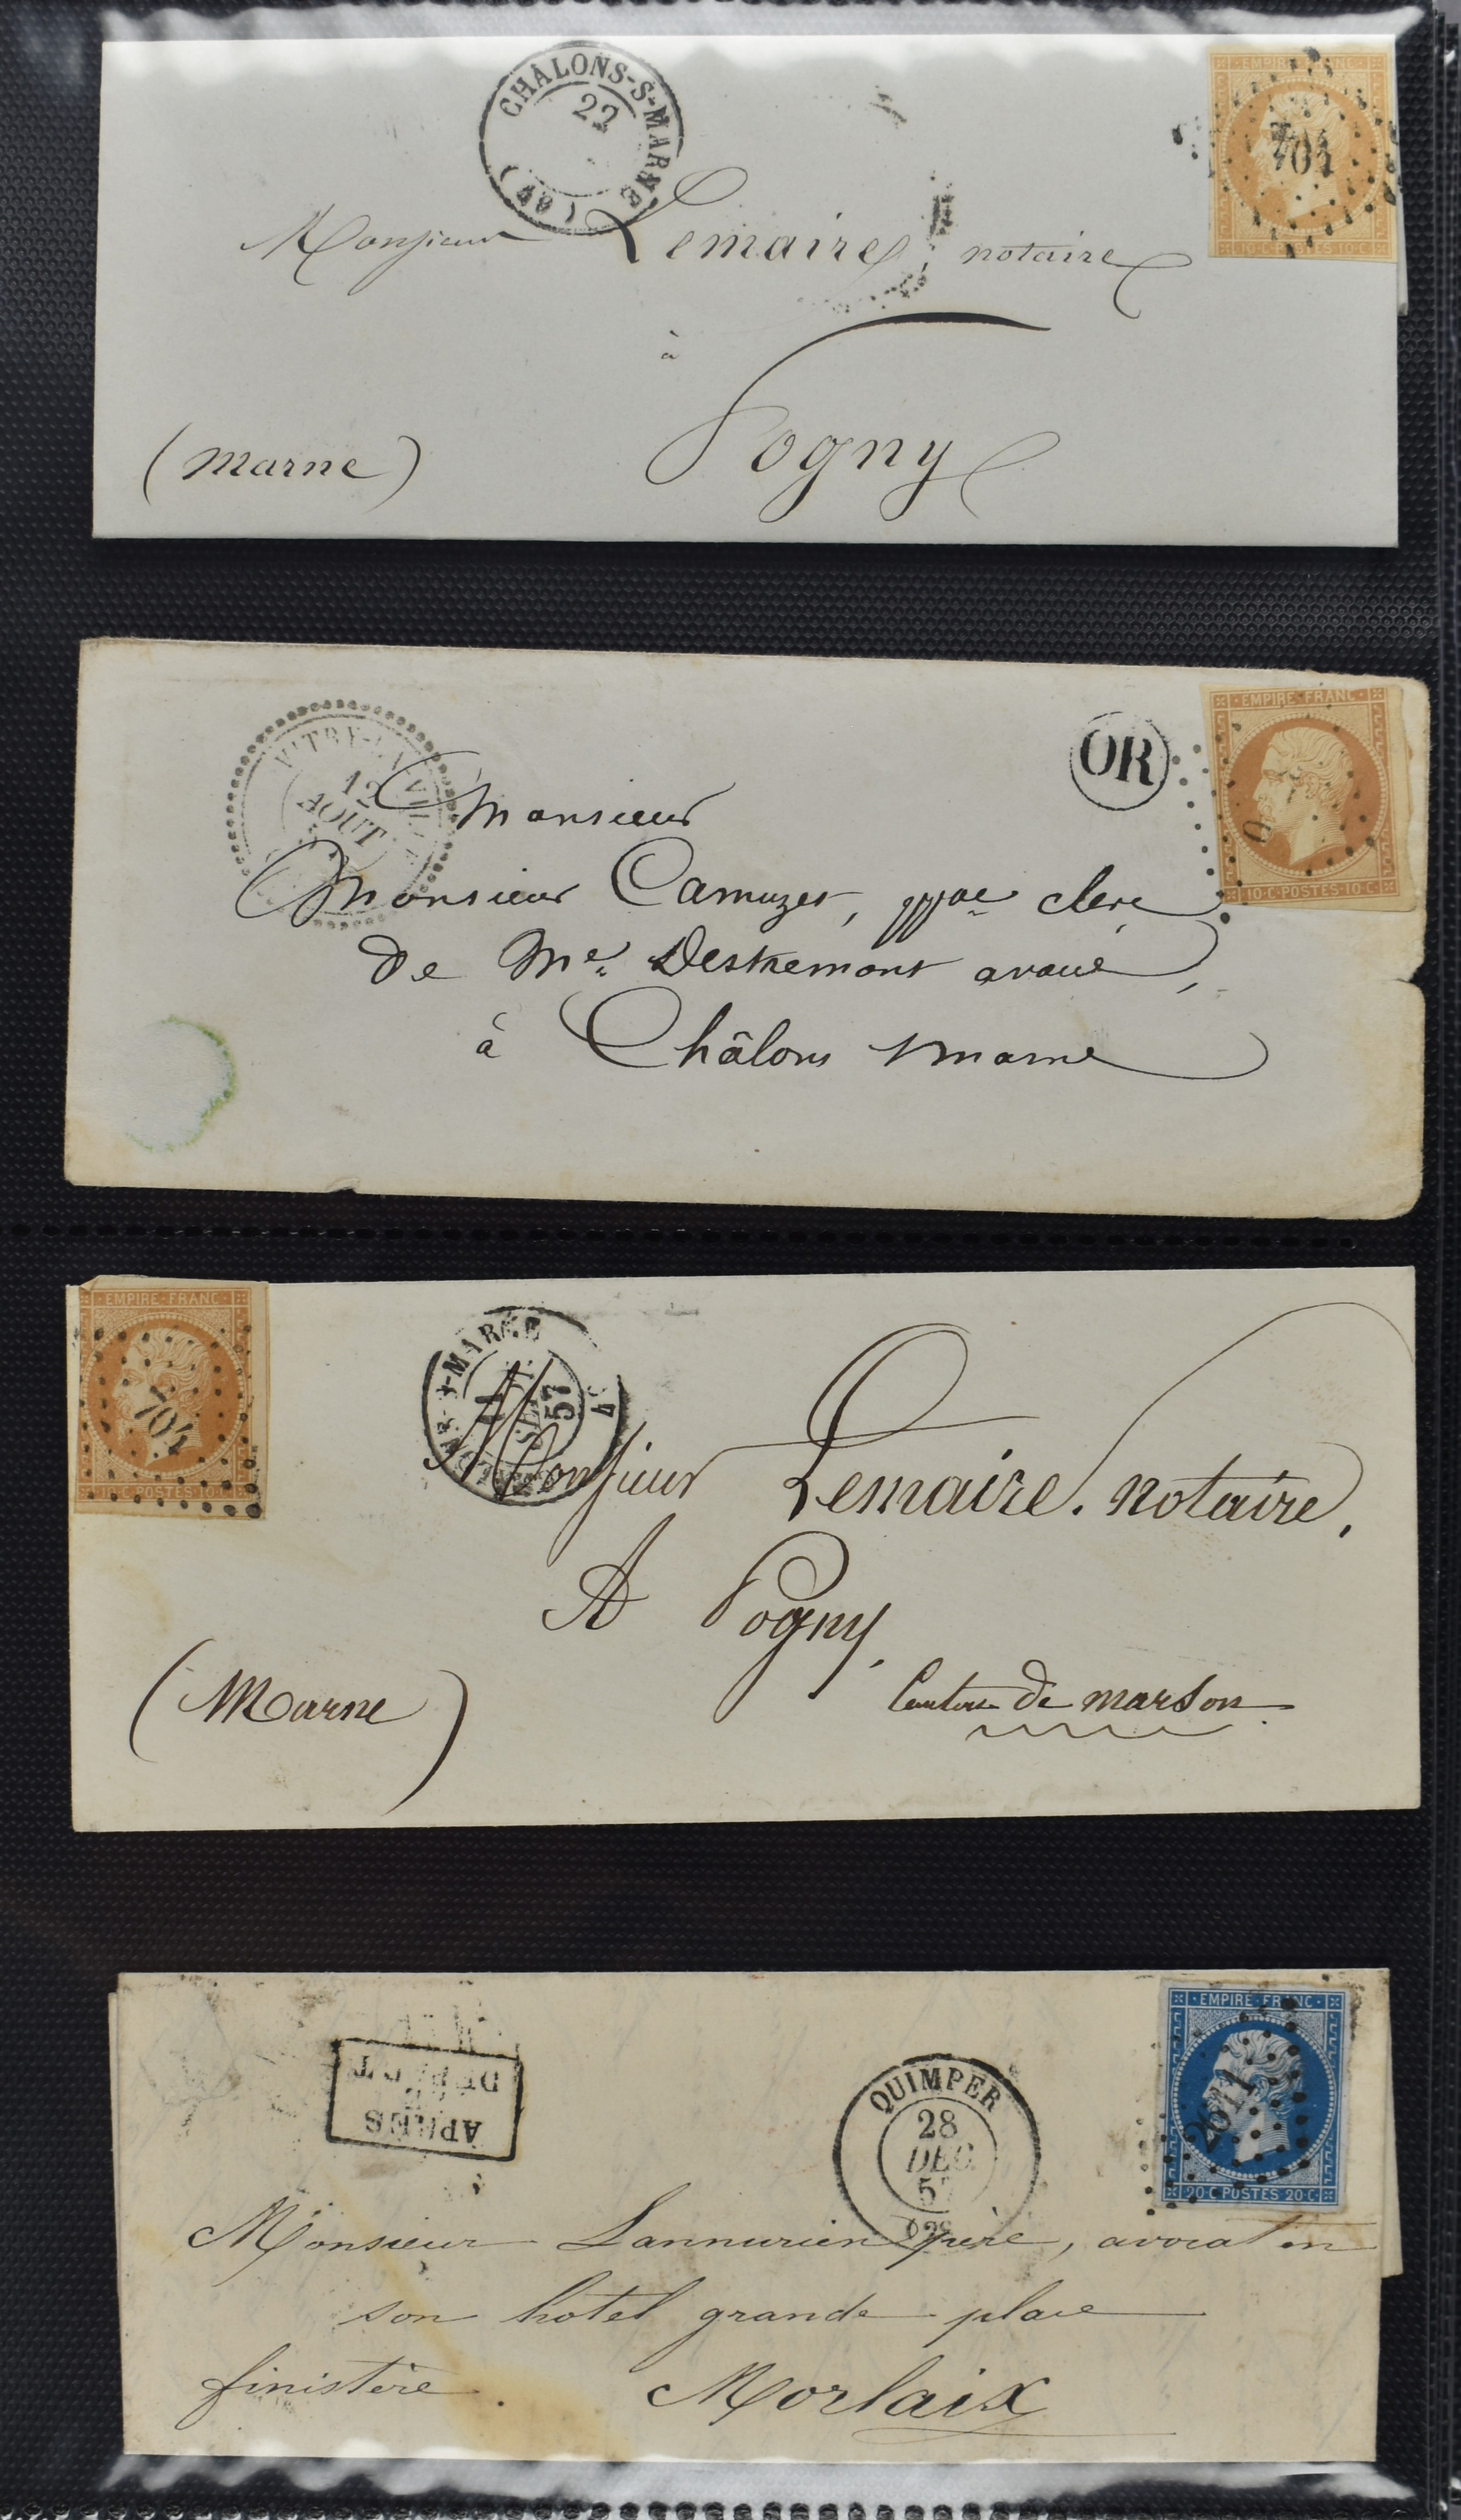 CHÂLONS-S-MARNE
22
(49)
EMPIRE FRANC
704
10·C·POSTES·10·C
Monsieur Lemaire, notaire
à
Pogny
(Marne)
VITRY-LA-VILLE
12
AOUT
OR
EMPIRE·FRANC
10·C·POSTES·10·C
Monsieur
Monsieur Camuzet, ppal clerc
de Me Deskemont avoué,
à Châlons s/marne
EMPIRE·FRANC
704
10·C·POSTES·10·C
57
Monsieur Lemaire. notaire,
A Pogny.
(Marne)
Canton de marson
APRÈS
DÉPART
QUIMPER
28
DEC
57
EMPIRE·FRANC
2611
20·C·POSTES·20·C
Monsieur Lannurien père, avocat en
son hôtel grande place
finistère. Morlaix